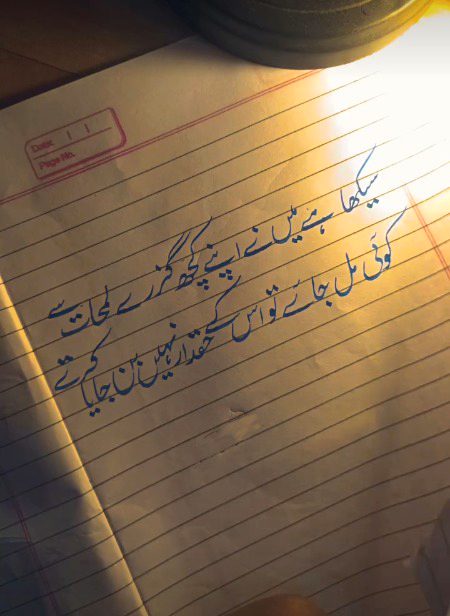 Date: / /
Page No.
سیکھا ہے میں نے اپنے کچھ گزرے لمحات سے
کوئی مل جائے تو اس کے حقدار نہیں بن جایا کرتے